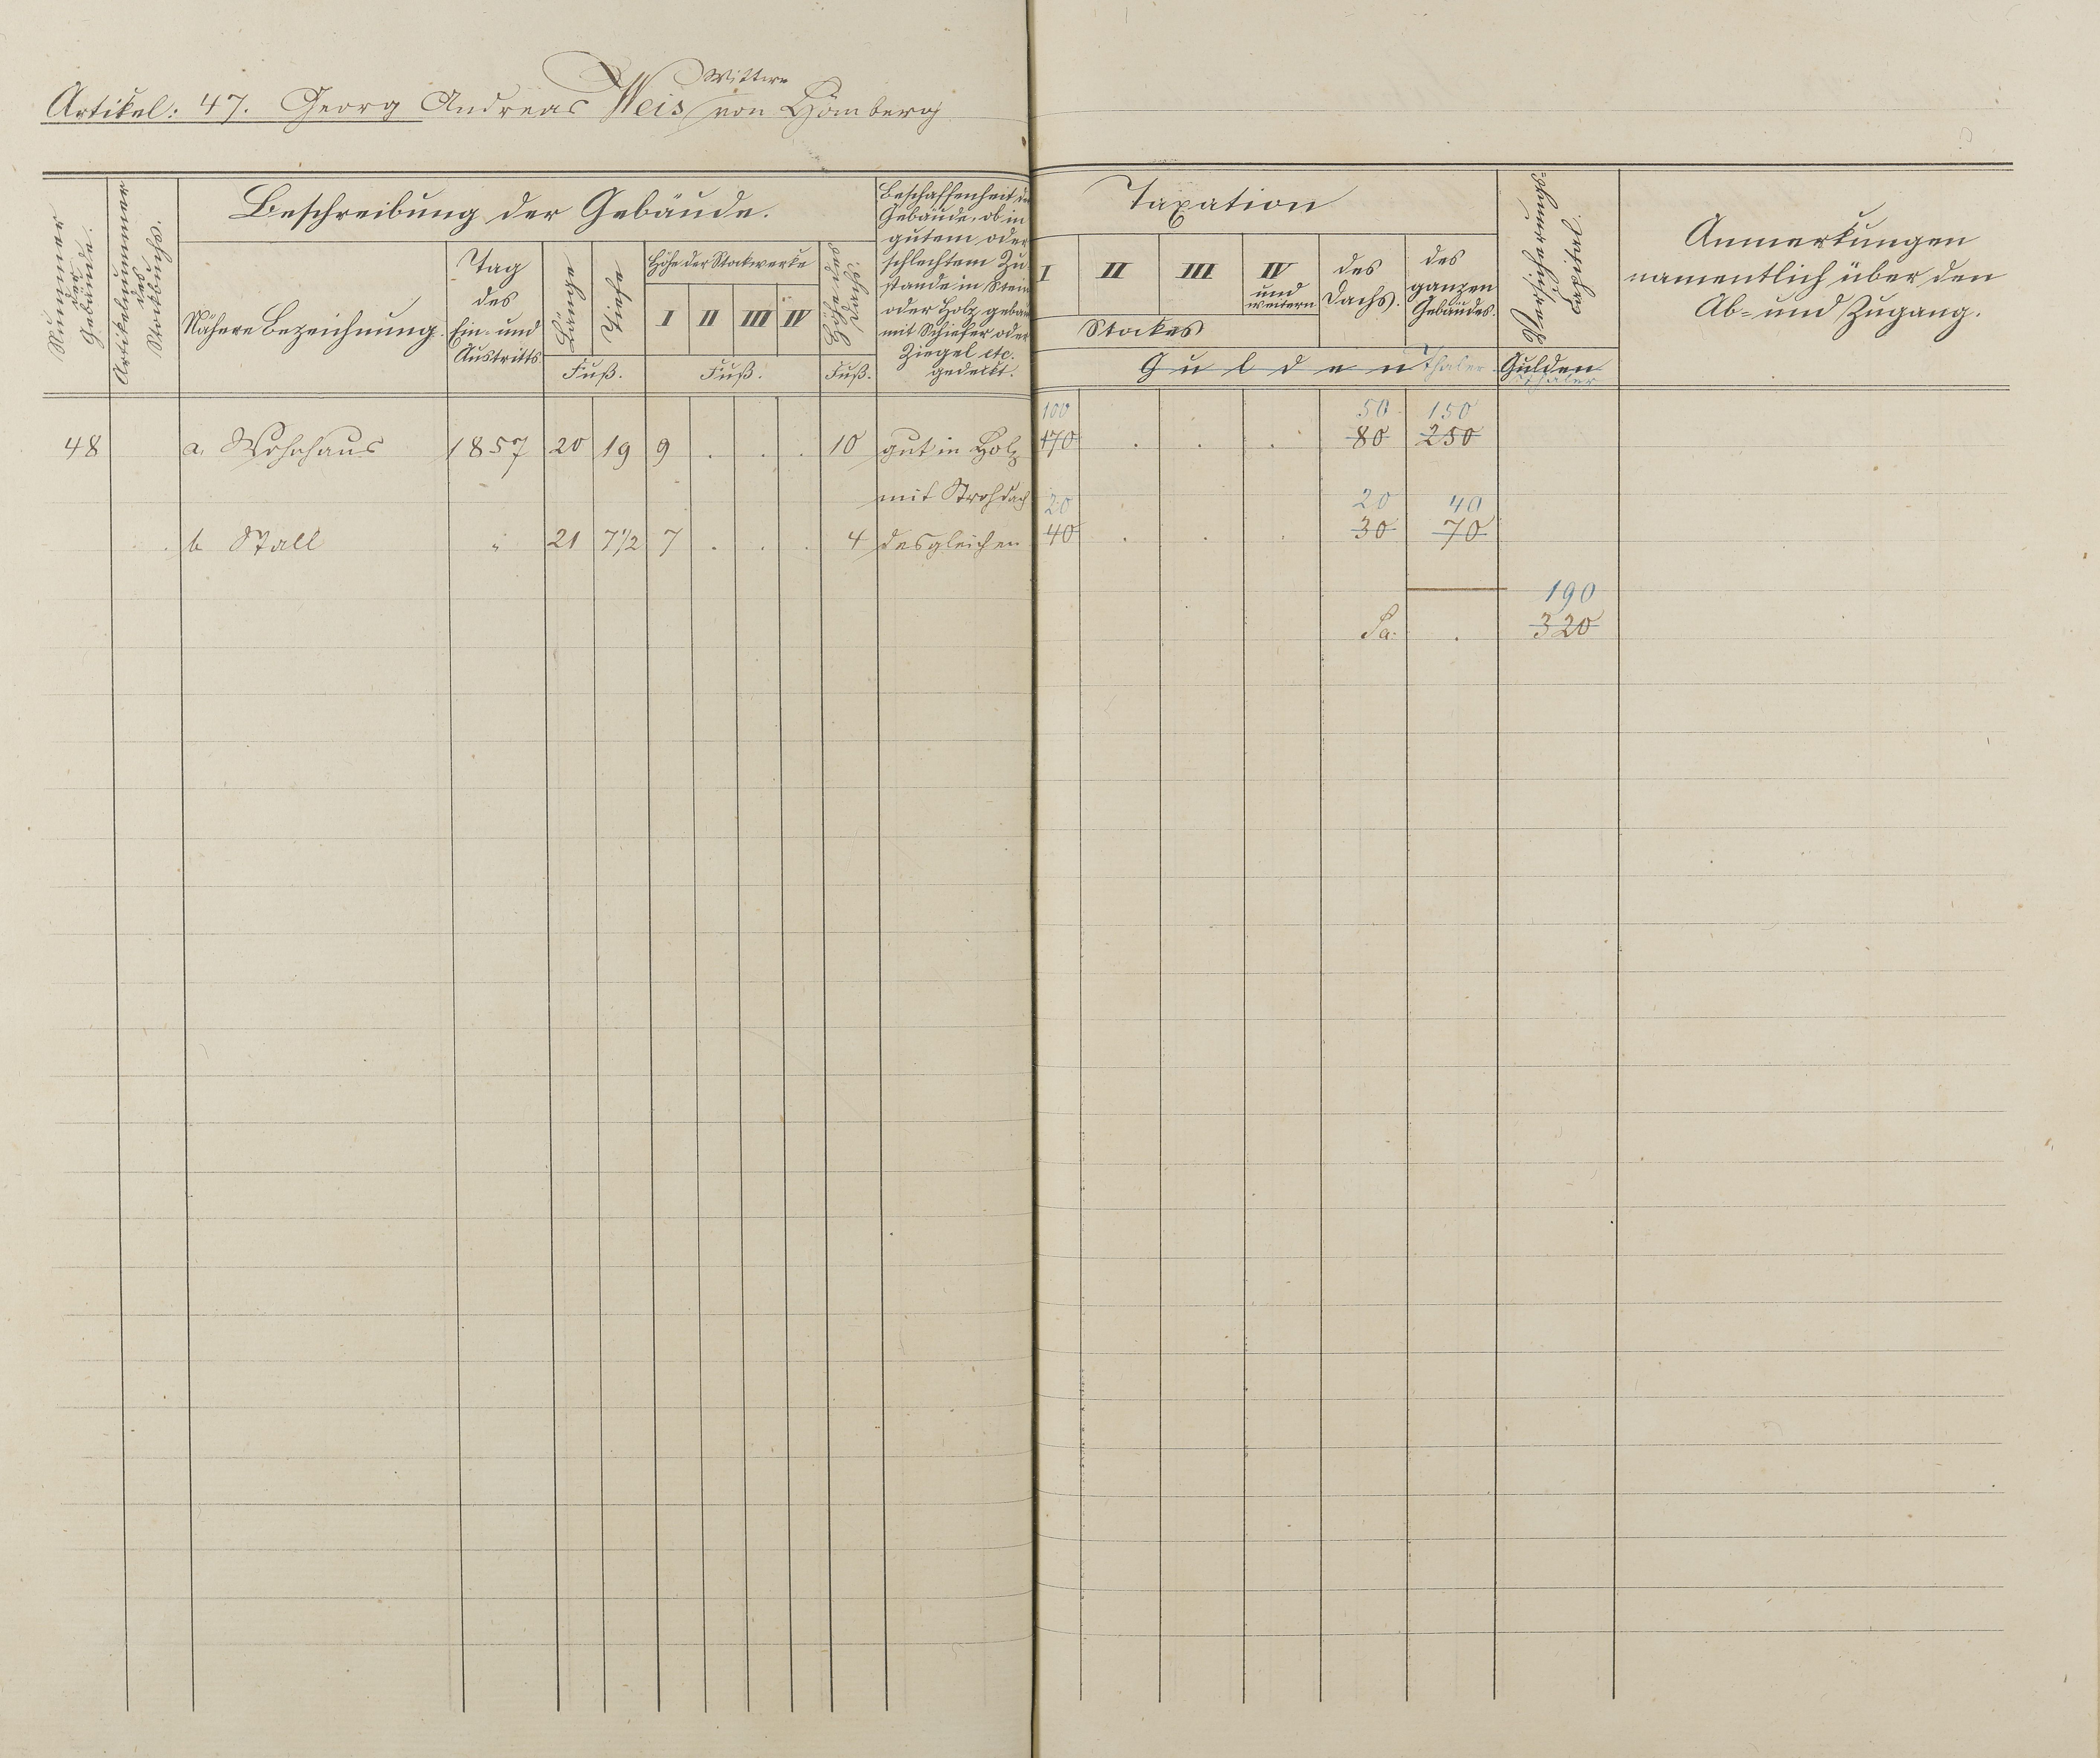 Wittwe
Artikel: 47. Georg Andreas Weis von Hömberg
Nummer der Gebäude.
Artikelnummer des Stockbuchs.
Beschreibung der Gebäude.
Nähere Bezeichnung.
Tag des Ein- und Austritts
Länge
Tiefe
Fuß.
Höhe der Stockwerke
I II III IV
Fuß.
Höhe des Dachs.
Fuß.
Beschaffenheit der
Gebäude, ob in
gutem oder
schlechtem Zu-
stande in Stein
oder Holz gebaut
mit Schiefer oder
Ziegel etc.
gedeckt.
Taxation
I II III IV und weitern
Stockes
des Dachs.
des ganzen Gebäudes.
Gulden Thaler
Versicherungs-
Capital.
Gulden
Thaler
Anmerkungen
namentlich über den
Ab- und Zugang.
100 50 150
48 a. Wohnhaus 1857 20 19 9 . . . 10 gut in Holz 170 . . . 80 250
mit Strohdach
20 20 40
b Stall " 21 7 1/2 7 . . . 4 desgleichen 40 . . . 30 70
190
Sa. . 320